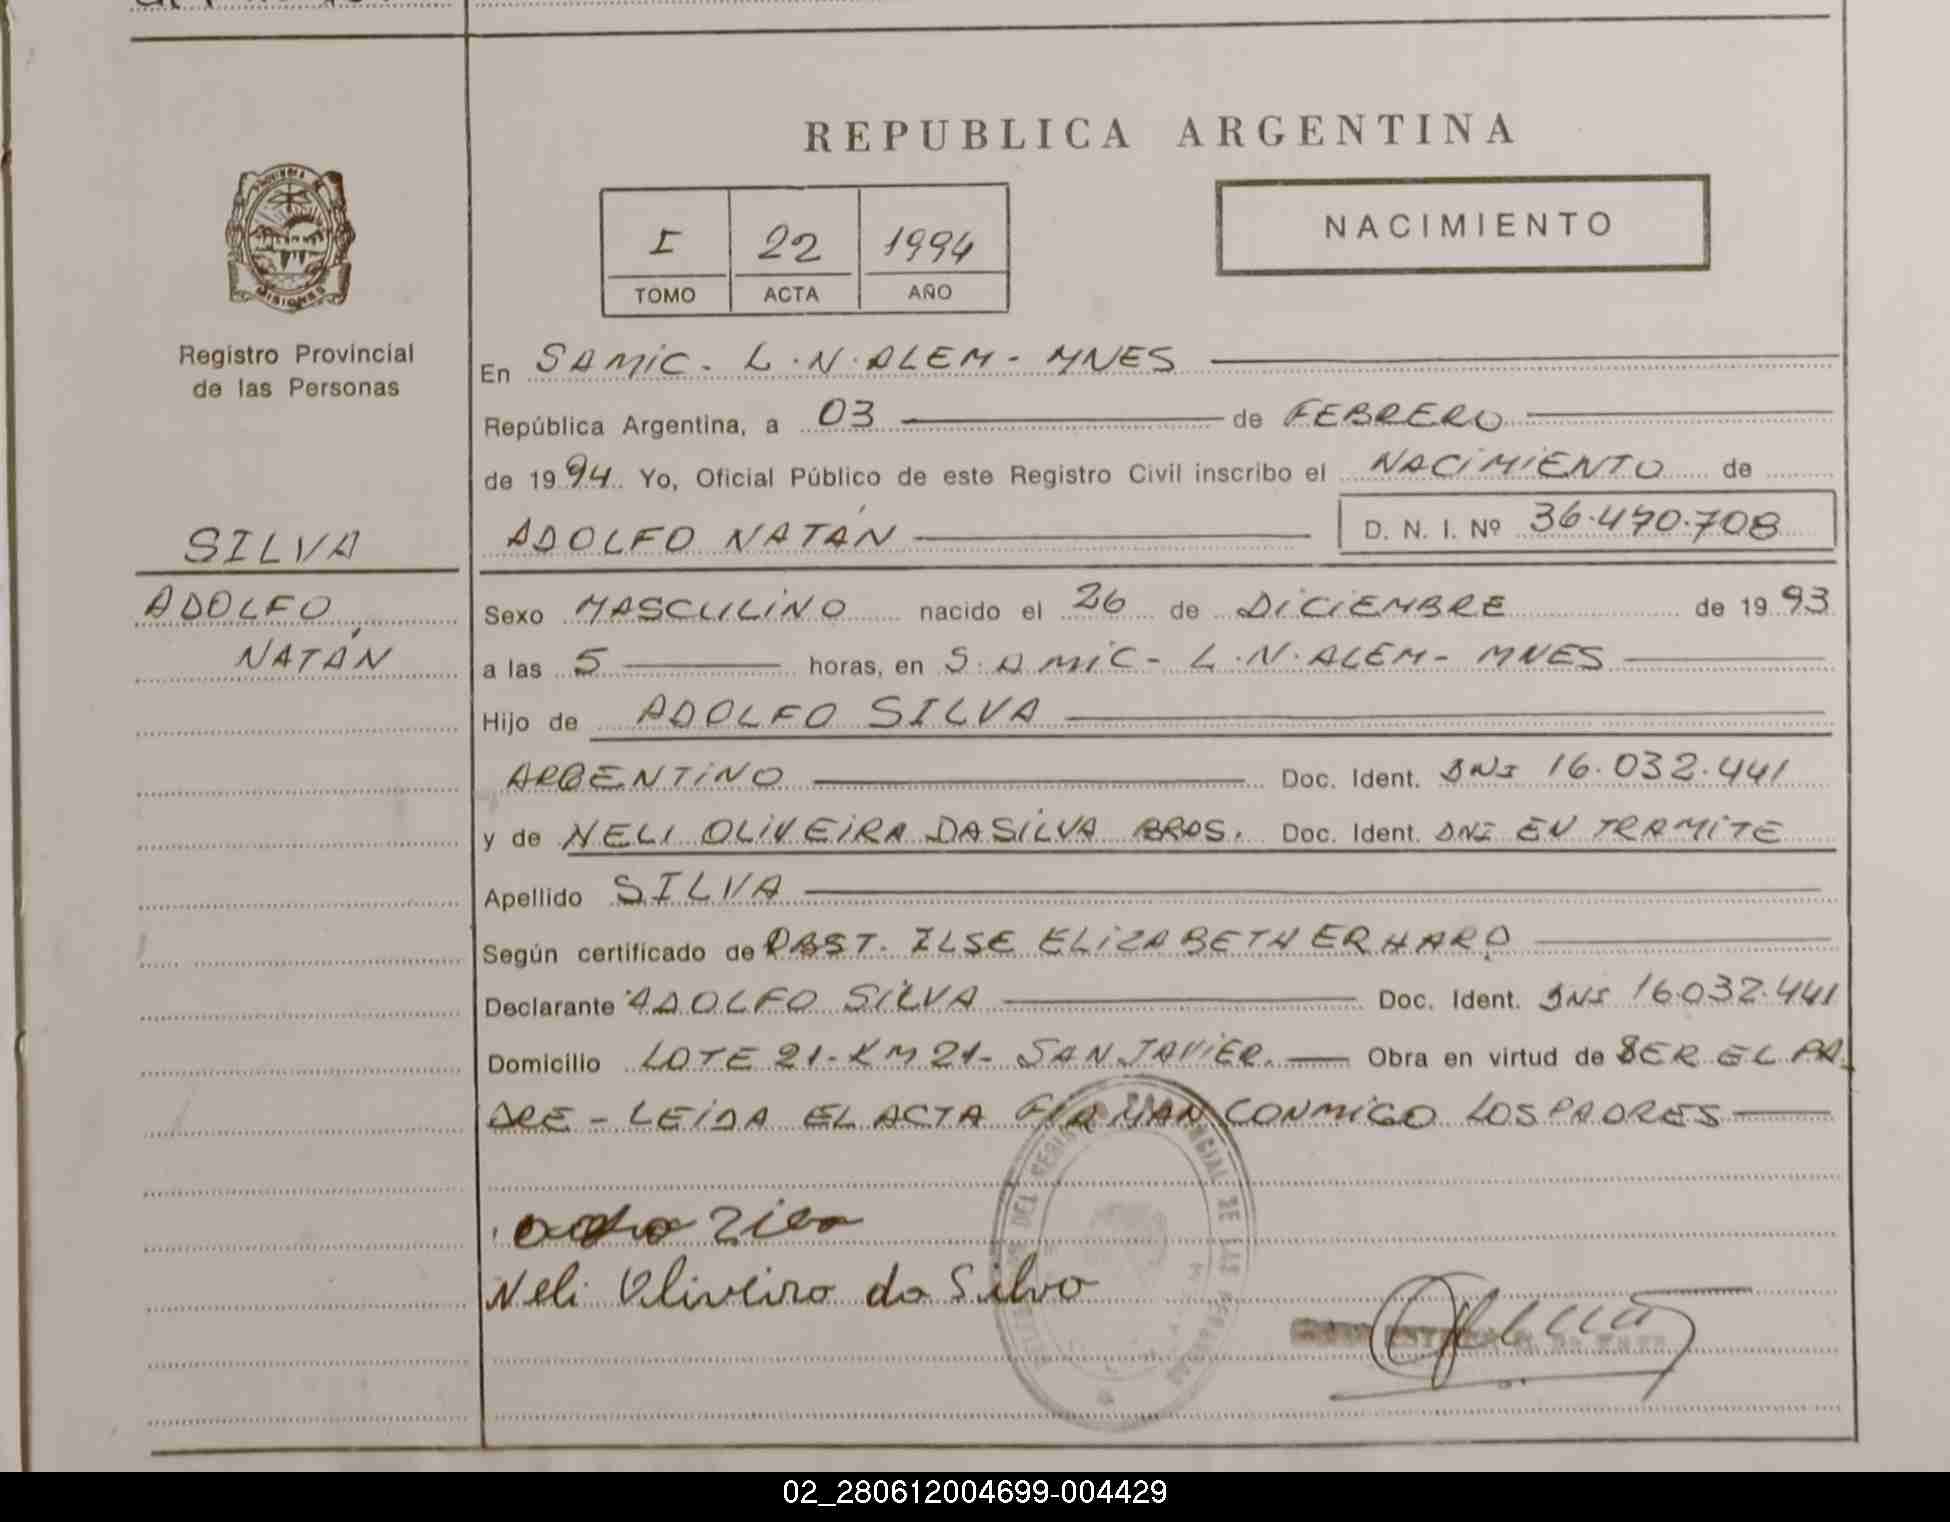 REPUBLICA ARGENTINA
PROVINCIA DE
MISIONES
Registro Provincial
de las Personas
I 22 1994
TOMO ACTA AÑO
NACIMIENTO
En SAMIC - L.N. ALEM - MNES
República Argentina, a 03 de FEBRERO
de 1994 Yo, Oficial Público de este Registro Civil inscribo el NACIMIENTO de
SILVA
ADOLFO NATÁN D. N. I. Nº 36.470.708
ADOLFO
NATÁN
Sexo MASCULINO nacido el 26 de DICIEMBRE de 1993
a las 5 horas, en S.AMIC - L.N. ALEM - MNES
Hijo de ADOLFO SILVA
ARGENTINO Doc. Ident. DNI 16.032.441
y de NELI OLIVEIRA DASILVA BRAS. Doc. Ident. DNI EN TRAMITE
Apellido SILVA
Según certificado de OBST. ILSE ELIZABETH ERHARD
Declarante ADOLFO SILVA Doc. Ident. DNI 16.032.441
Domicilio LOTE 21 - KM 21 - SAN JAVIER. Obra en virtud de SER EL PA-
DRE - LEIDA EL ACTA FIRMAN CONMIGO LOS PADRES
Neli Oliveira da Silva
02_280612004699-004429